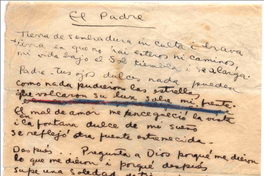 El Padre
Tierra de sembradura inculta i brava
tierra en que no hai esteros ni caminos,
mi vida bajo el Sol tiembla i se alarga.
Padre tus ojos dulces nada pueden
como nada pudieron las estrellas
que
El mal de amor me encegueció la vista
i en la fontana dulce de mi sueño
se reflejó otra fuente estremecida.
Después. Pregunta a Dios por qué me dieron
lo que me dieron i por qué después
supe una soledad de